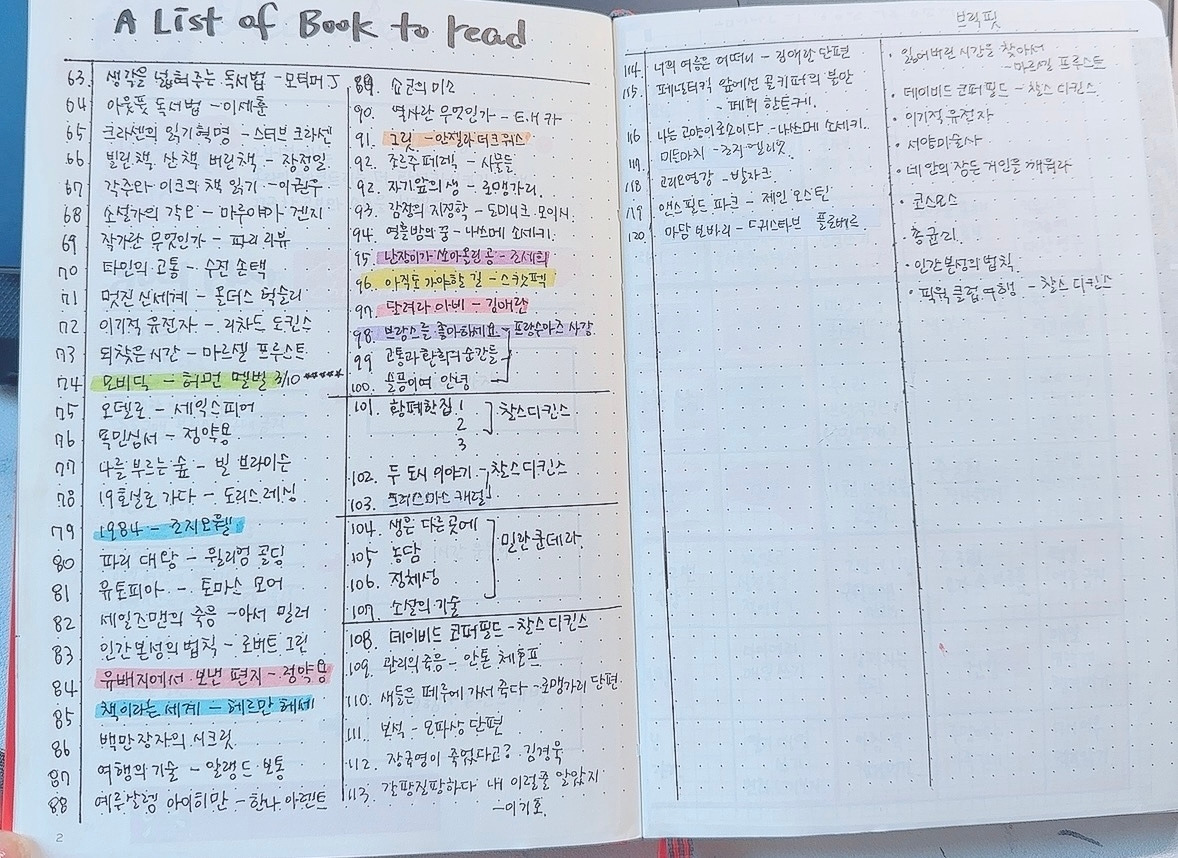 A List of Book to read
63. 생각을 넓혀주는 독서법 - 모티머 J
64 아웃풋 독서법 - 이세훈
65 크라센의 읽기혁명 - 스티브 크라센
66 빌린책, 산 책 버린책 - 장정일
67 각주와 이크의 책 읽기 - 이권우
68 소설가의 각오 - 마루야마 겐지
69 작가란 무엇인가 - 파리 리뷰
70 타인의 고통 - 수전 손택
71 멋진 신세계 - 올더스 헉슬리
72 이기적 유전자 - 리차드 도킨스
73 되찾은 시간 - 마르셀 프루스트
74 모비딕 - 허먼 멜빌 3/10 *****
75 오델로 - 세익스피어
76 목민심서 - 정약용
77 나를 부르는 숲 - 빌 브라이슨
78 19호실로 가다 - 도리스 레싱
79 1984 - 조지오웰
80 파리 대왕 - 윌리엄 골딩
81 유토피아 - 토마스 모어
82 세일즈맨의 죽음 - 아서 밀러
83 인간 본성의 법칙 - 로버트 그린
84 유배지에서 보낸 편지 - 정약용
85 책이라는 세계 - 헤르만 헤세
86 백만장자의 시크릿
87 여행의 기술 - 알랭드 보통
88 예루살렘 아이히만 - 한나 아렌트
2
89. 쇼코의 미소
90. 역사란 무엇인가 - E.H 카
91. 그릿 - 안젤라 더크워스
92. 조르주 페렉 - 사물들
92. 자기 앞의 생 - 로맹가리.
93. 감정의 지정학 - 도미니크 모이시
94. 열흘밤의 꿈 - 나쓰메 소세키.
95. 난장이가 쏘아올린 공 - 조세희
96. 아직도 가야할 길 - 스캇펙
97. 달려라 아비 - 김애란
98. 브람스를 좋아하세요 - 프랑수아즈 사강
99 고통과 환희의 순간들
100. 슬픔이여 안녕
101. 황폐한집 1
2
3
찰스디킨스
102. 두 도시 이야기 - 찰스디킨스
103. 크리스마스 캐럴
104. 생은 다른곳에
105 농담
106. 정체성
107. 소설의 기술
밀란쿤데라
108. 데이비드 코퍼필드 - 찰스 디킨스
109. 관리의 죽음 - 안톤 체호프
110. 새들은 페루에 가서 죽다 - 로맹가리 단편
111. 보석 - 모파상 단편
112. 장국영이 죽었다고? 김경욱
113. 갈팡질팡하다 내 이럴줄 알았지
- 이기호
114. 너의 여름은 어떠니 - 김애란 단편
115. 페널티킥 앞에선 골키퍼의 불안
- 페터 한트케.
116 나는 고양이로소이다 - 나쓰메 소세키.
117. 미들마치 - 조지 엘리엇.
118 고리오영감 - 발자크.
119 맨스필드 파크 - 제인 오스틴
120. 마담 보바리 - 귀스타브 플로베르
브릭핏
· 잃어버린 시간을 찾아서
- 마르셀 프루스트
· 데이비드 코퍼필드 - 찰스 디킨스
· 이기적 유전자
· 서양미술사
· 네 안의 잠든 거인을 깨워라
· 코스모스
· 총균쇠.
· 인간본성의 법칙.
· 픽윅 클럽 여행 - 찰스 디킨스